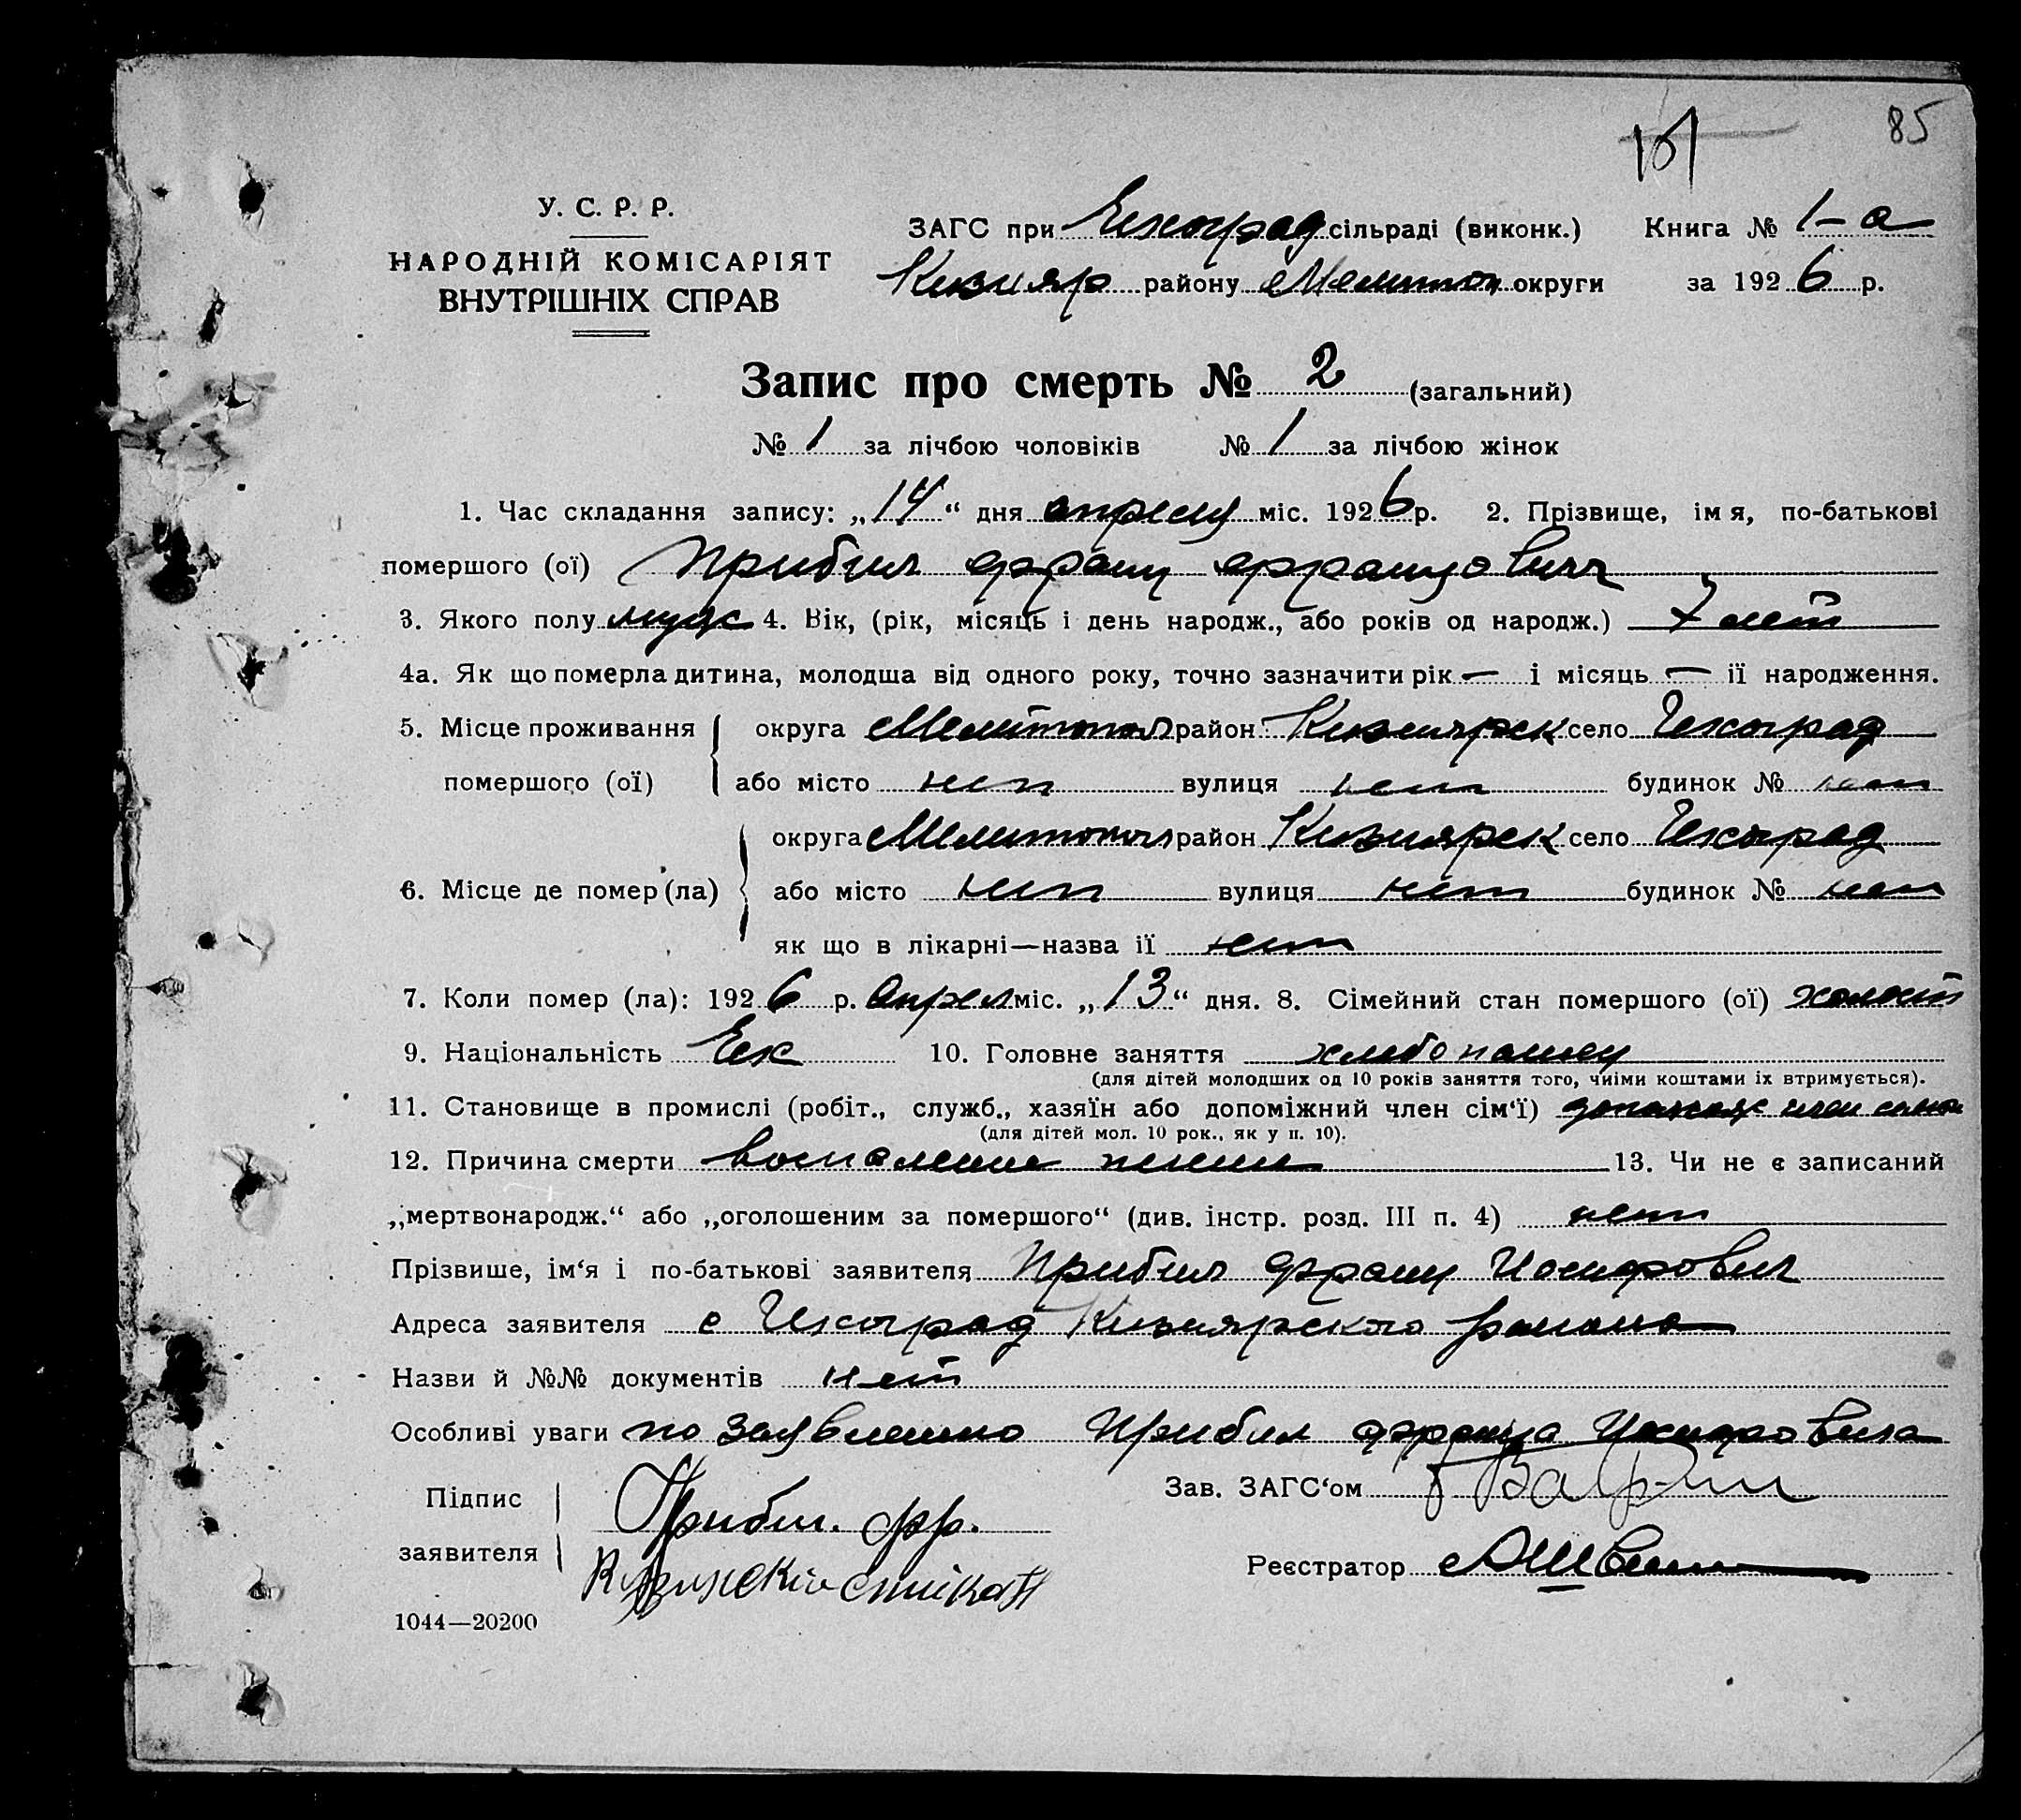 101 85
У. С. Р. Р.
НАРОДНІЙ КОМІСАРІЯТ
ВНУТРІШНІХ СПРАВ
ЗАГС при Чехоград сільраді (виконк.) Книга № 1-а
Кизияр району Мелитоп округи за 1926 р.
Запис про смерть № 2 (загальний)
№ 1 за лічбою чоловіків № 1 за лічбою жінок
1. Час складання запису: „14“ дня апрелу міс. 1926 р. 2. Прізвище, ім я, по-батькові
помершого (ої) Прибил Франц Францович
3. Якого полу муж 4. Вік, (рік, місяць і день народж., або років од народж.) 7 лет
4а. Як що померла дитина, молодша від одного року, точно зазначити рік — і місяць — її народження.
5. Місце проживання округа Мелитопол район Кизиярск село Чехоград
помершого (ої) або місто нет вулиця нет будинок № нет
округа Мелитопол район Кизиярск село Чехоград
6. Місце де помер (ла) або місто нет вулиця нет будинок № нет
як що в лікарні—назва її нет
7. Коли помер (ла): 1926 р. Апрел міс. „13“ дня. 8. Сімейний стан помершого (ої) холост
9. Національність Чех 10. Головне заняття хлебопашец
(для дітей молодших од 10 років заняття того, чиїми коштами їх втримується).
11. Становище в промислі (робіт., служб., хазяїн або допоміжний член сім‘ї) член
(для дітей мол. 10 рок., як у п. 10).
12. Причина смерти воспаление 13. Чи не є записаний
„мертвонародж.“ або „оголошеним за помершого“ (див. інстр. розд. III п. 4) нет
Прізвише, ім‘я і по-батькові заявителя Прибил Франц Иосифович
Адреса заявителя с Чехоград Кизиярского района
Назви й №№ документів нет
Особливі уваги по заявлению Прибил Франца Иосифовича
Підпис Прибил. Фр. Зав. ЗАГС‘ом
заявителя Реєстратор
1044—20200